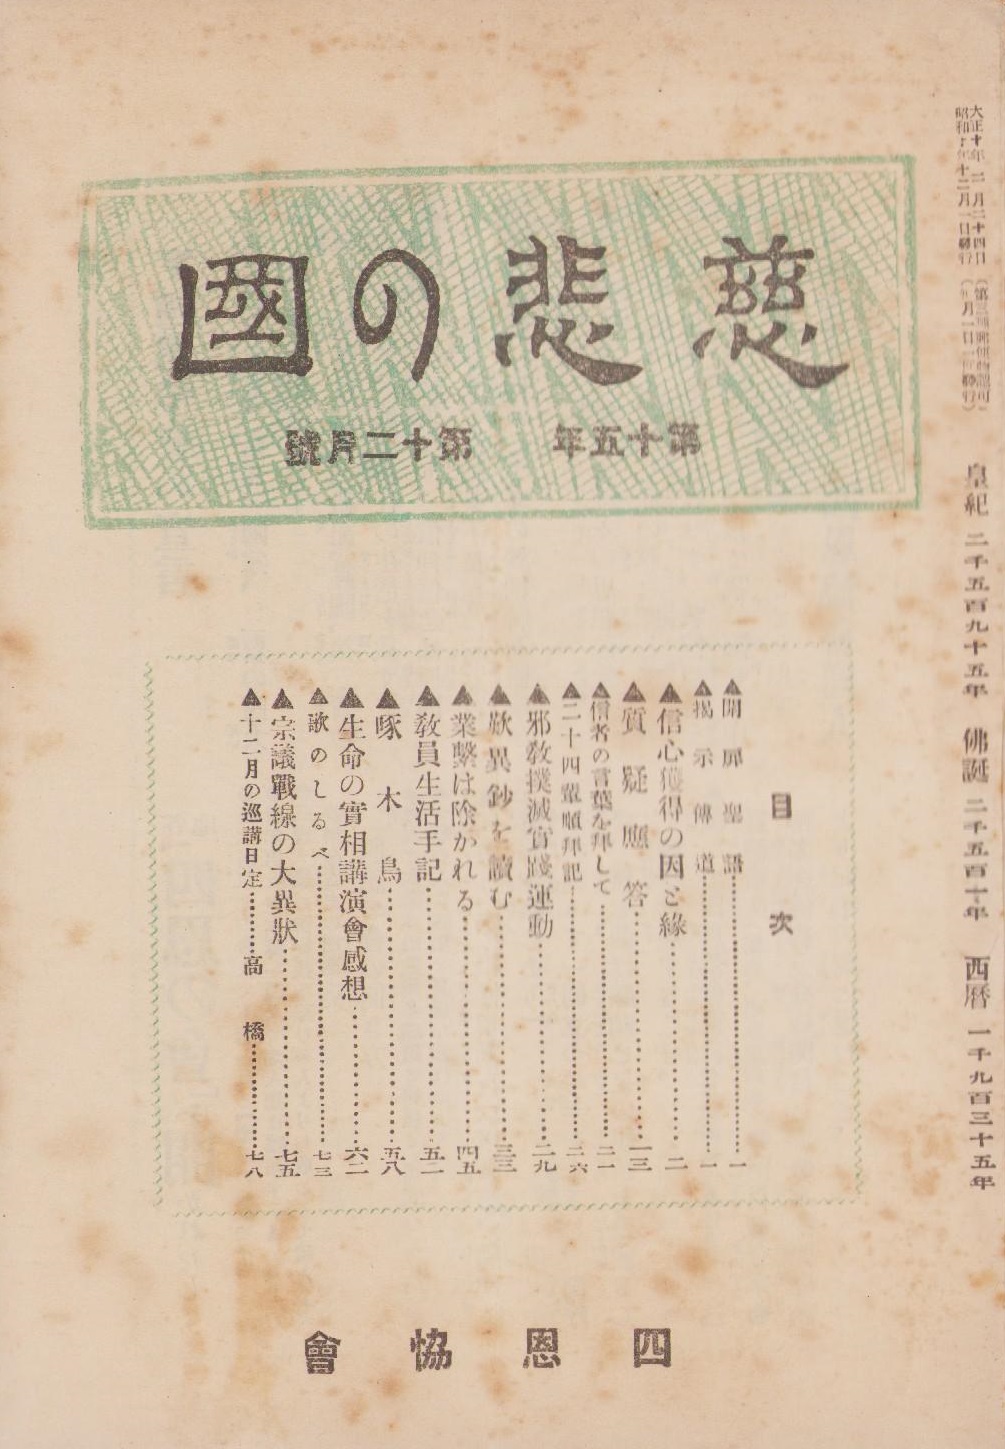 大正十年三月二十四日(第三種郵便物認可)
昭和十年十二月一日發行(每月一日一回發行)
皇紀 二千五百九十五年 佛誕 二千五百十年 西曆 一千九百三十五年
慈悲の國
第十五年 第十二月號
目次
▲開扉聖語…一
▲揭示傳道…一
▲信心獲得の因と緣…二
▲質疑應答…一三
▲信者の言葉を拜して…二一
▲二十四輩順拜記…二六
▲邪敎撲滅實踐運動…二九
▲歎異鈔を讀む…三三
▲業繫は除かれる…四五
▲敎員生活手記…五二
▲啄木鳥…五八
▲生命の實相講演會感想…六二
▲歌のしるべ…七三
▲宗議戰線の大異狀…七五
▲十二月の巡講日定…高橋…七八
四恩協會